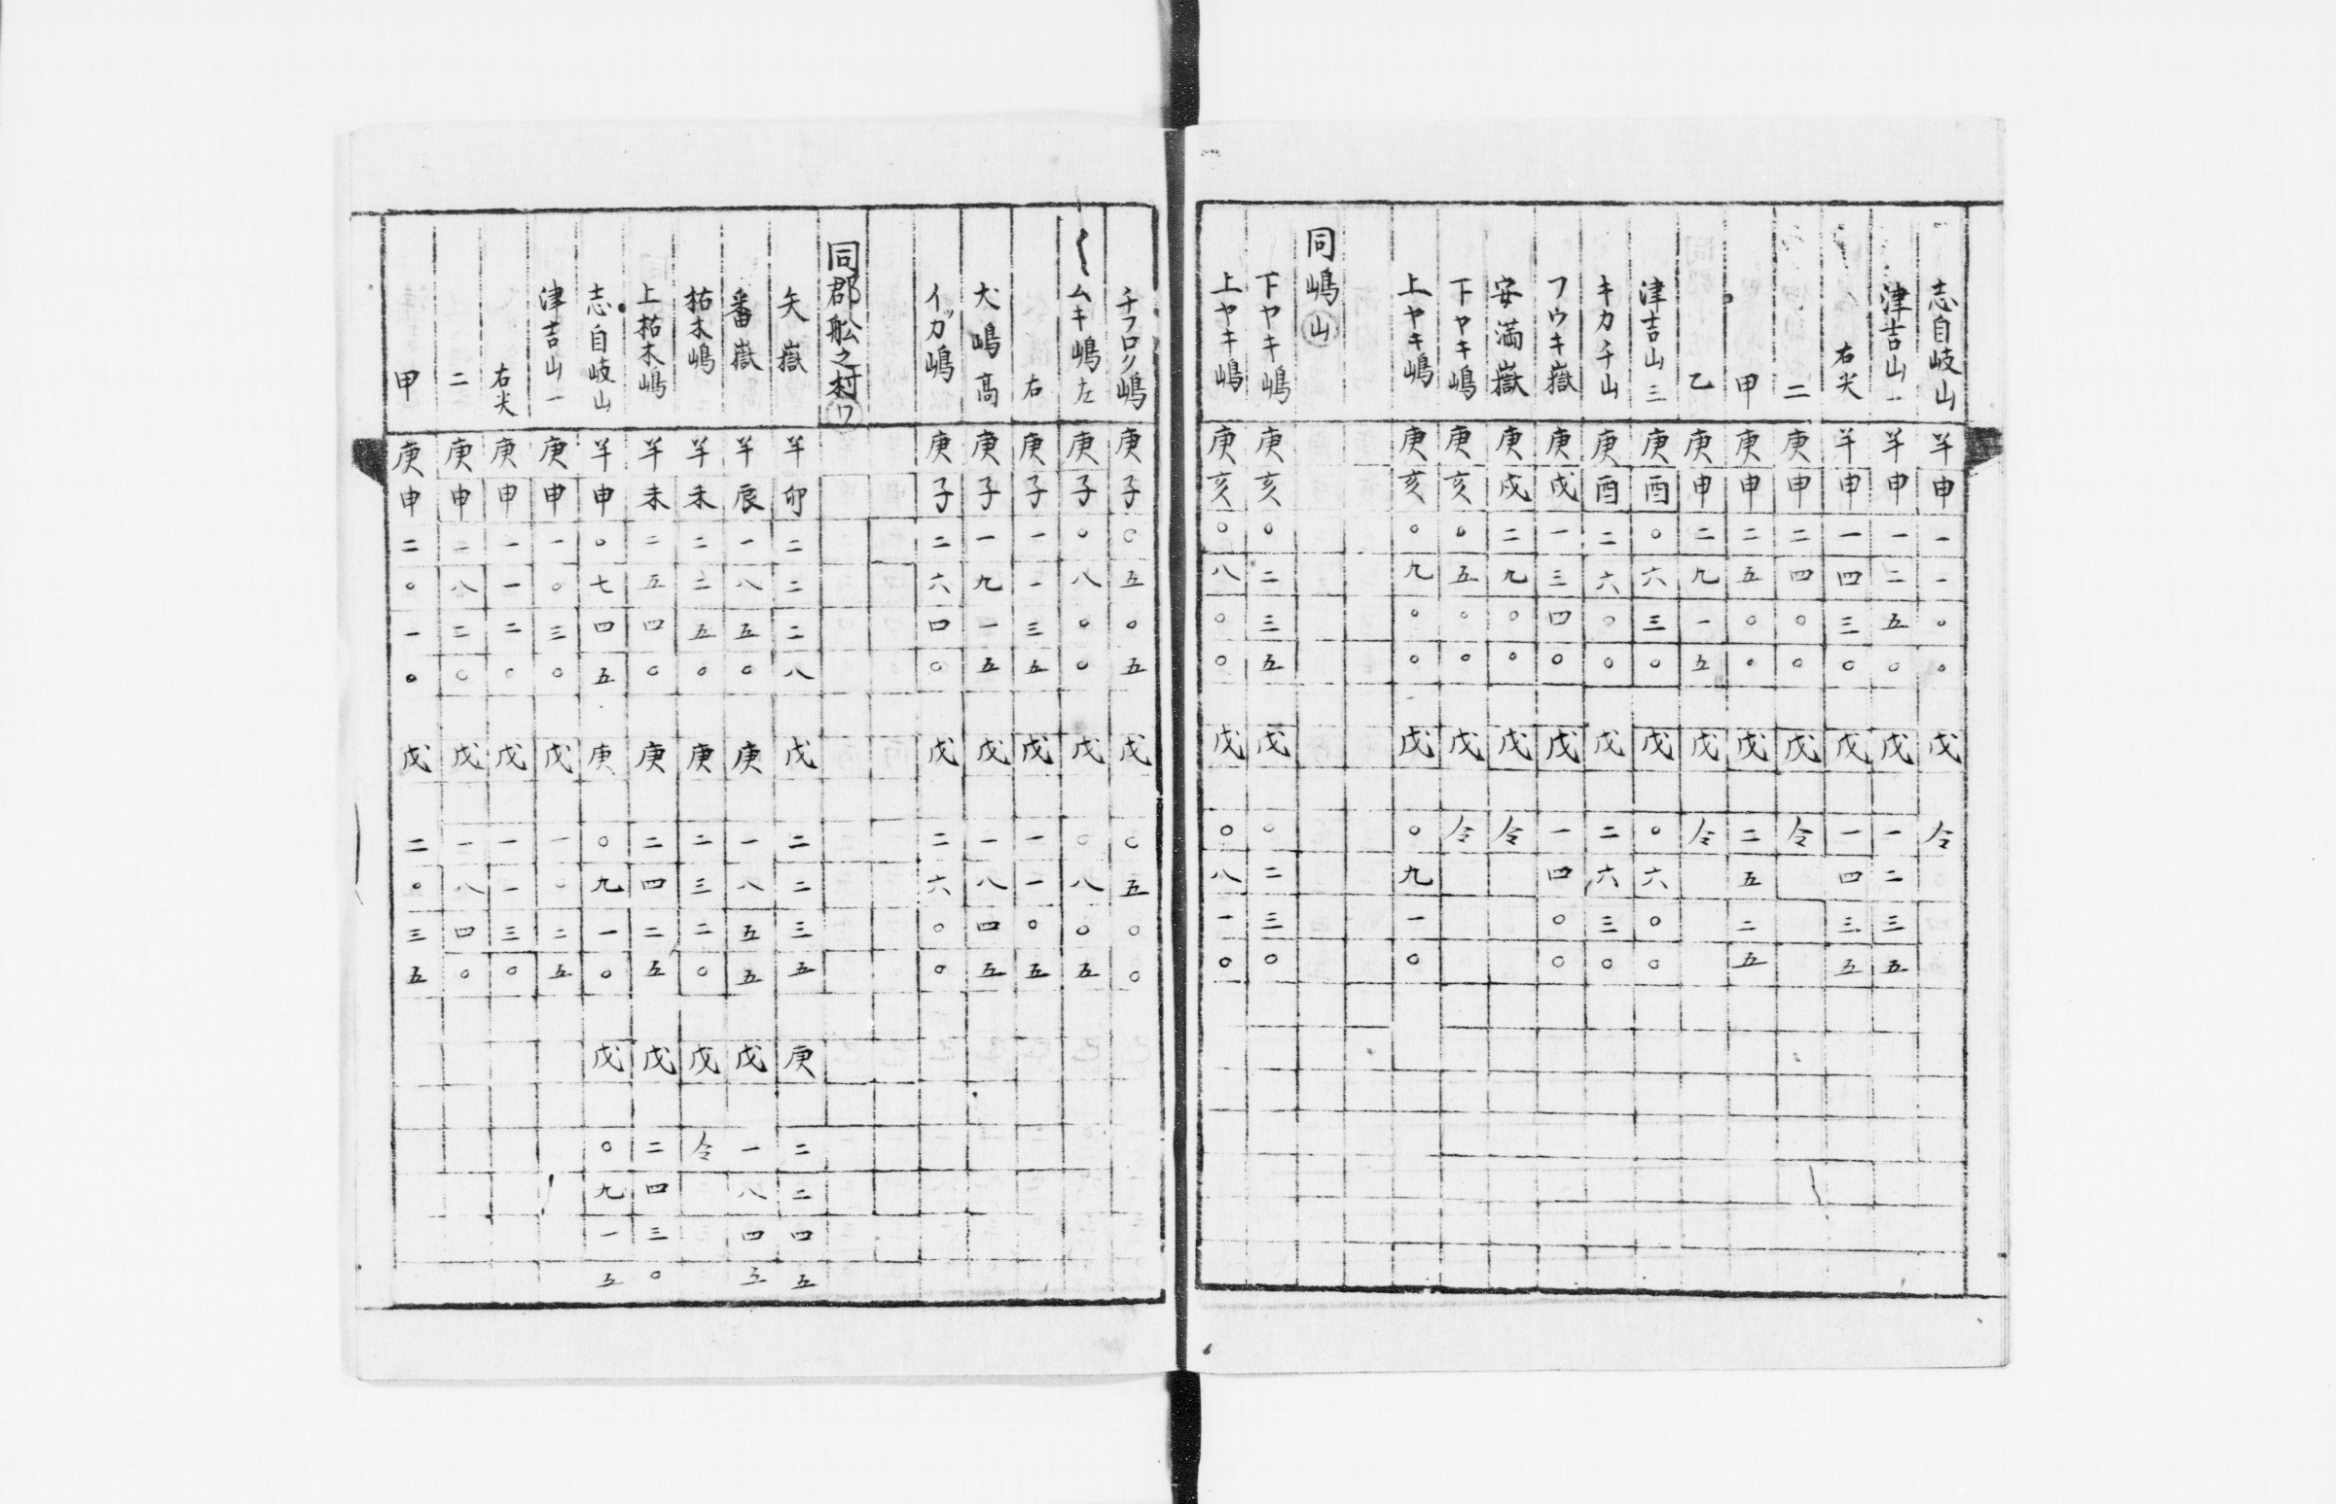 志自岐山 羊申一一〇〇 戊 仝
津吉山一 羊申一二五〇 戊 一二三五
右尖 羊申一四三〇 戊 一四三五
二 庚申二四〇〇 戊 仝
甲 庚申二五〇〇 戊 二五二五
乙 庚申二九一五 戊 仝
津吉山三 庚酉〇六三〇 戊 〇六〇〇
キカチ山 庚酉二六〇〇 戊 二六三〇
フウキ嶽 庚戌一三四〇 戊 一四〇〇
安満嶽 庚戌二九〇〇 戊 仝
下ヤキ嶋 庚亥〇五〇〇 戊 仝
上ヤキ嶋 庚亥〇九〇〇 戊 〇九一〇
同嶋山
下ヤキ嶋 庚亥〇二三五 戊 〇二三〇
上ヤキ嶋 庚亥〇八〇〇 戊 〇八一〇
チフロク嶋 庚子〇五〇五 戊 〇五〇〇
ムキ嶋左 庚子〇八〇〇 戊 〇八〇五
右 庚子一一三五 戊 一一〇五
犬嶋高 庚子一九一五 戊 一八四五
イガ嶋 庚子二六四〇 戊 二六〇〇
同郡舩之村ワ
矢嶽 羊卯二二二八 戊 二二三五 庚 二二四五
番嶽 羊辰一八五〇 庚 一八五五 戊 一八四五
拓木嶋 羊未二二五〇 庚 二三二〇 戊 仝
上拓木嶋 羊未二五四〇 庚 二四二五 戊 二四三〇
志自岐山 羊申〇七四五 庚 〇九一〇 戊 〇九一五
津吉山一 庚申一〇三〇 戊 一〇二五
右尖 庚申一一二〇 戊 一一三〇
二 庚申二八二〇 戊 一八四〇
甲 庚申二〇一〇 戊 二〇三五